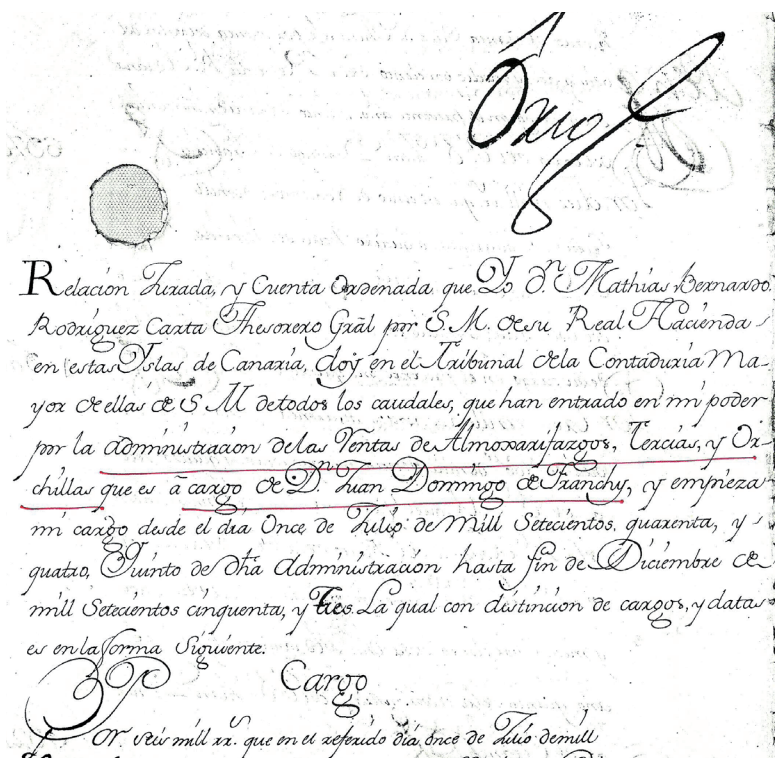 Relacion Jurada, y Cuenta Ordenada que Yo Dn. Mathias Bernardo
Rodriguez Carta Thesorero Grãl por S. M. de su Real Hacienda
en estas Yslas de Canaria, doy en el Tribunal de la Contaduria Ma-
yor de ellas de S M de todos los caudales, que han entrado en mi poder
por la administracion de las Rentas de Almoxarifazgos, Tercias, y Or-
chillas que es â cargo de Dn. Juan Domingo de Franchy, y empieza
mi cargo desde el dia Once de Julio de Mill Setecientos quarenta, y
quatro, Quinto de dha Administracion hasta fin de Diciembre de
mill Setecientos cinquenta, y tres. La qual con distincion de cargos, y datas
es en la forma Siguiente.
Cargo
Por Seis mill rr.s que en el referido dia once de Julio de mill